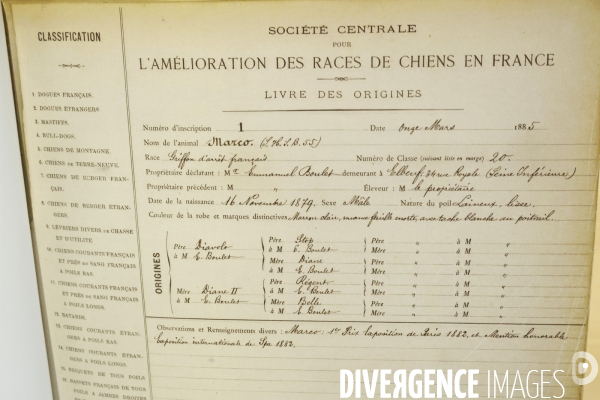 SOCIÉTÉ CENTRALE
POUR
L'AMÉLIORATION DES RACES DE CHIENS EN FRANCE
LIVRE DES ORIGINES
CLASSIFICATION
1. DOGUES FRANÇAIS.
2. DOGUES ÉTRANGERS.
3. MASTIFFS.
4. BULL-DOGS.
5. CHIENS DE MONTAGNE.
6. CHIENS DE TERRE-NEUVE.
7. CHIENS DE BERGER FRAN-
ÇAIS.
8. CHIENS DE BERGER ÉTRAN-
GERS.
9. LÉVRIERS DIVERS DE CHASSE
ET D'UTILITÉ.
10. CHIENS COURANTS FRANÇAIS
ET PRÈS DU SANG FRANÇAIS
A POILS RAS.
11. CHIENS COURANTS FRANÇAIS
ET PRÈS DU SANG FRANÇAIS
A POILS LONGS.
12. BATARDS.
13. CHIENS COURANTS ÉTRAN-
GERS A POILS RAS.
14. CHIENS COURANTS ÉTRAN-
GERS A POILS LONGS.
15. BRIQUETS DE TOUS POILS
16. BASSETS FRANÇAIS DE TOUS
POILS A JAMBES DROITES
Numéro d'inscription 1 Date onze Mars 1885
Nom de l'animal Marco. (L.H.S.B. 55)
Race Griffon d'arrêt français Numéro de Classe (suivant liste en marge) 20.
Propriétaire déclarant : Mr Emmanuel Boulet demeurant à Elbeuf, 34 rue Royale (Seine Inférieure)
Propriétaire précédent : M Éleveur : M le propriétaire
Date de la naissance 16 Novembre 1879. Sexe Mâle Nature du poil Laineux, lisse.
Couleur de la robe et marques distinctives Marron clair, nuance feuille morte, avec tache blanche au poitrail.
ORIGINES
Père Diavolo
à M E. Boulet
Père Stop
à M E. Boulet
Mère Diane
à M E. Boulet
Mère Diane II
à M E. Boulet
Père Régent
à M E. Boulet
Mère Belle
à M E. Boulet
Père " à M "
Mère " à M "
Père " à M "
Mère " à M "
Père " à M "
Mère " à M "
Père " à M "
Mère " à M "
Observations et Renseignements divers : Marco : 1er Prix Exposition de Paris 1882, et Mention honorable
Exposition internationale de Spa 1882.
DIVERGENCE IMAGES